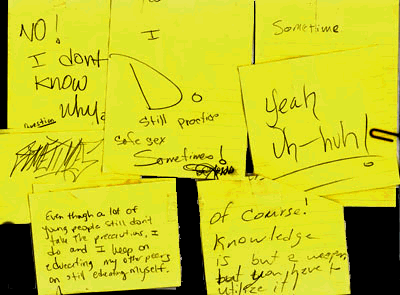 NO!
I dont
know
why
question
I
Do
Still practise
safe sex
Sometimes!
Sometime
yeah
uh-huh!
SOMETIMES
Even though a lot of
young people still don't
take the precautions, I
do and I keep on
educating my other peers
on still educating myself.
of course!
Knowledge
is but a weapon,
but you have to
utilize it!